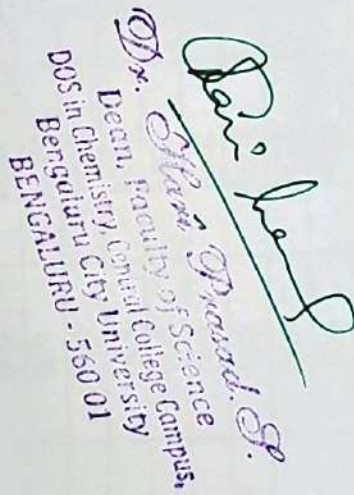 Dr. Hari Prasad. S.
Dean, Faculty of Science
DOS in Chemistry Central College Campus,
Bengaluru City University
BENGALURU - 560 01